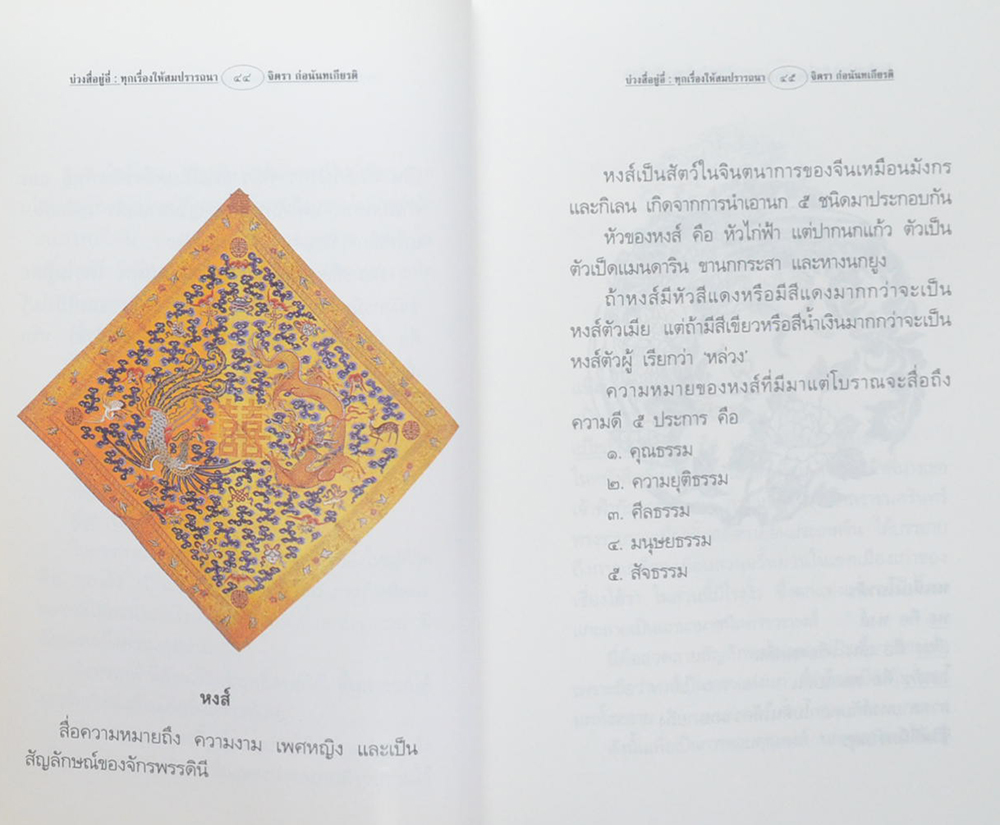 บ่วงสื่ออยู่อี่ : ทุกเรื่องให้สมปรารถนา ๔๔ จิตรา ก่อนันทเกียรติ
囍
หงส์
สื่อความหมายถึง ความงาม เพศหญิง และเป็น
สัญลักษณ์ของจักรพรรดินี
บ่วงสื่ออยู่อี่ : ทุกเรื่องให้สมปรารถนา ๔๕ จิตรา ก่อนันทเกียรติ
หงส์เป็นสัตว์ในจินตนาการของจีนเหมือนมังกร
และกิเลน เกิดจากการนำเอานก ๕ ชนิดมาประกอบกัน
หัวของหงส์ คือ หัวไก่ฟ้า แต่ปากนกแก้ว ตัวเป็น
ตัวเป็ดแมนดาริน ขานกกระสา และหางนกยูง
ถ้าหงส์มีหัวสีแดงหรือมีสีแดงมากกว่าจะเป็น
หงส์ตัวเมีย แต่ถ้ามีสีเขียวหรือสีน้ำเงินมากกว่าจะเป็น
หงส์ตัวผู้ เรียกว่า 'หล่วง'
ความหมายของหงส์ที่มีมาแต่โบราณจะสื่อถึง
ความดี ๕ ประการ คือ
๑. คุณธรรม
๒. ความยุติธรรม
๓. ศีลธรรม
๔. มนุษยธรรม
๕. สัจธรรม